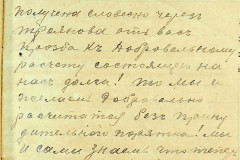 получена словесно через
Троянова отъ васъ
прозба къ добровольному
расчоту состоящей на
насъ долга! то мы и
желаем доброчально
расчитатся безъ прину
дительного порятка! мы
и сами знаем что тепер